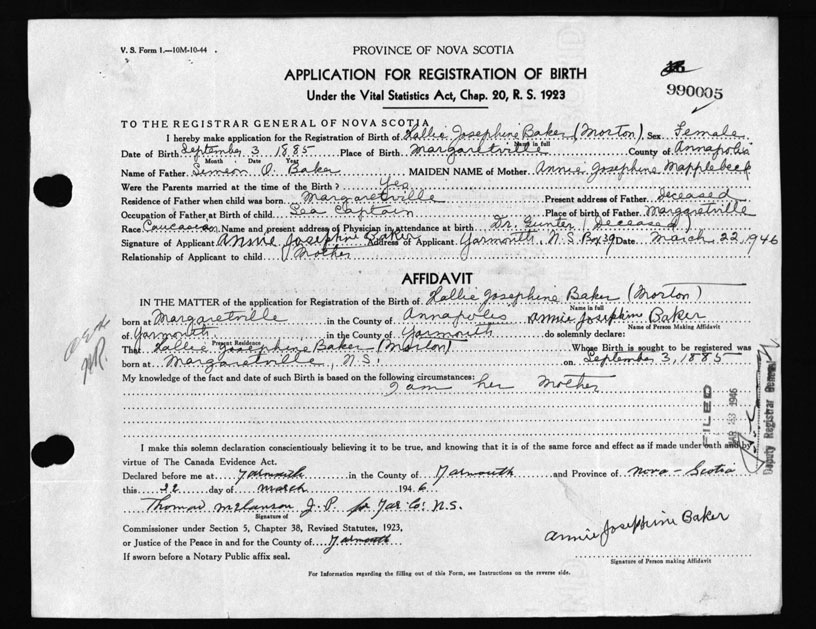 V. S. Form 1.—10M-10-44
PROVINCE OF NOVA SCOTIA
APPLICATION FOR REGISTRATION OF BIRTH
Under the Vital Statistics Act, Chap. 20, R. S. 1923
990005
TO THE REGISTRAR GENERAL OF NOVA SCOTIA
I hereby make application for the Registration of Birth of Hallie Josephine Baker (Morton), Sex Female
Name in full
Date of Birth September 3 1885 Place of Birth Margaretville County of Annapolis
Month Date Year
Name of Father Simeon O. Baker MAIDEN NAME of Mother Annie Josephine Mapplebeck
Were the Parents married at the time of the Birth? Yes
Residence of Father when child was born Margaretville Present address of Father Deceased
Occupation of Father at Birth of child Sea Captain Place of birth of Father Margaretville
Race Caucasian Name and present address of Physician in attendance at birth Dr. Gunter (Deceased)
Signature of Applicant Annie Josephine Baker Address of Applicant Yarmouth, N. S. Box 39 Date March 22, 1946
Relationship of Applicant to child Mother
AFFIDAVIT
IN THE MATTER of the application for Registration of the Birth of Hallie Josephine Baker (Morton)
Name in full
born at Margaretville in the County of Annapolis Annie Josephine Baker
Name of Person Making Affidavit
of Yarmouth in the County of Yarmouth do solemnly declare:
Present Residence
That Hallie Josephine Baker (Morton) Whose Birth is sought to be registered was
born at Margaretville, N. S. on September 3, 1885
My knowledge of the fact and date of such Birth is based on the following circumstances:
I am her Mother
FILED
MAR 1946
Deputy Registrar General
I make this solemn declaration conscientiously believing it to be true, and knowing that it is of the same force and effect as if made under oath and by
virtue of The Canada Evidence Act.
Declared before me at Yarmouth in the County of Yarmouth and Province of Nova-Scotia
this 22 day of March 1946
Thomas J. P. for Yar Co: N.S.
Signature of
Commissioner under Section 5, Chapter 38, Revised Statutes, 1923,
or Justice of the Peace in and for the County of Yarmouth
If sworn before a Notary Public affix seal.
Annie Josephine Baker
Signature of Person making Affidavit
For Information regarding the filling out of this Form, see Instructions on the reverse side.